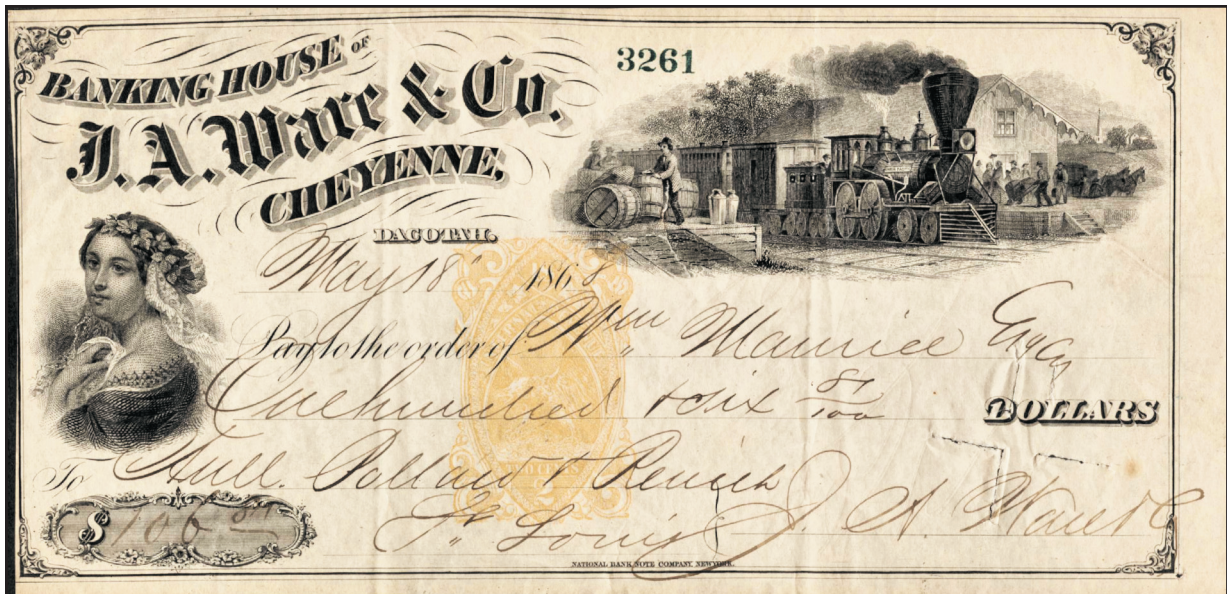 BANKING HOUSE OF
3261
J. A. Ware & Co.
CHEYENNE,
DACOTAH.
May 18" 1868
Pay to the order of Wm Maurice Esq
One hundred & six 81/100 DOLLARS
To Hull. &
$ 106
St Louis J. A. Ware & Co
TWO CENTS
NATIONAL BANK NOTE COMPANY. NEW YORK.